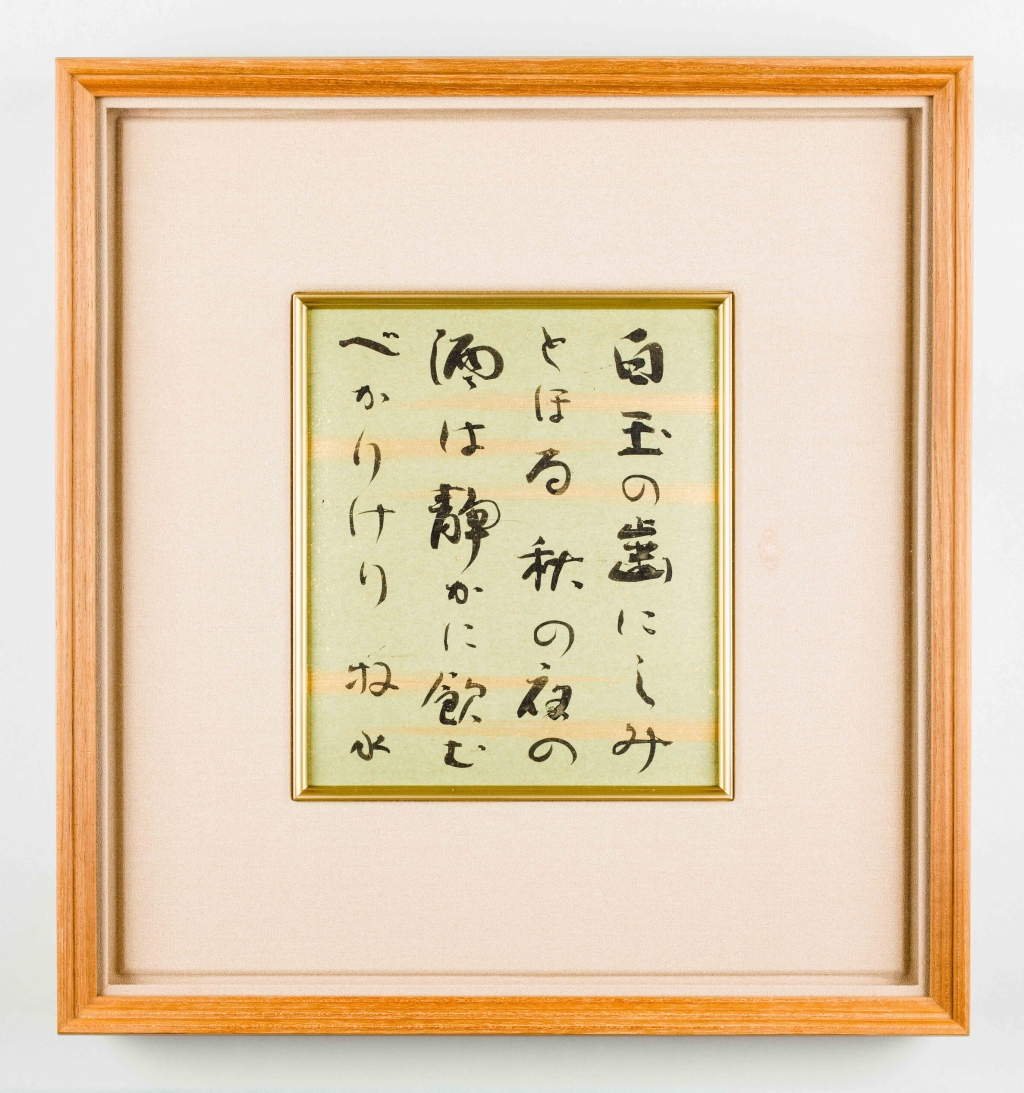 白玉の歯にしみ
とほる秋の夜の
酒は静かに飲む
べかりけり 牧水